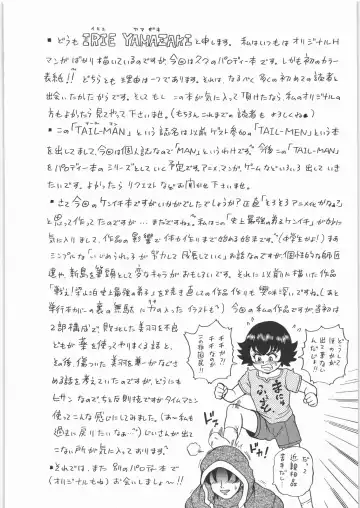 ■どうも IRIE YAMAZAKI と申します。私はいつもはオリジナルH
マンガばかり描いているのですが、今回は2つのパロディー本です。しかも初のカラー
表紙!! どちらとも理由は一つであります。それは、なるべく多くの初めての読者と
出会いたかたからです。そしてもしこの本が気に入って頂けたなら、私のオリジナルの
方もよかたら見てやって下さいませ。(もちろんこれまでの読者もよろしくねっ)
■この「TAIL-MAN」という誌名は以前ゲスト参加の「TAIL-MEN」という本
を出してまして、今回は個人誌なので「MAN」というわけです。今後この「TAIL-MAN」
をパロディー本のシリーズとしていく予定です。アニメ、マンガ、ゲームなどいろいろ出して いき
たいです。よかったらリクエストなどお聞かせ下さいませ。
■さて今回のケンイチですがいかがでしたでしょうか?正直「とうとうアニメ化かなぁ?」
と思って作ってたのですが…まだですねぇ。私はこの「史上最強の弟子ケンイチ」がかなり
気に入りまして、作品の影響で体力作りまで始める始末です。(中学生かよ!)まぁ
シンプルな「いじめられっ子が努力して成長していく」お話なのですが個性的な師匠
達や、新島を筆頭として変なキャラがおもしろいです。それに以前に描いた作品
「戦え!梁山泊史上最強の弟子」を読き直しての作品作りも興味深いですね。(あと
単行本カバーの裏の無駄に力の入ったイラストも)今回の私の作品ですが当初は
2部構成で、敗北した美羽を不良
どもが拳を使ってやりまくる話と、
その後、傷ついた美羽を兼一がなぐさ
める話を考えていたのですが、どうにも
ヒサンなので、ちょっと反則技ですがタイムマシン
使ってこんな感じにしてみました。(あ〜私も
過去に戻りたいなぁ〜)じいさんが出て
こない所が気に入っております。
■それでは、また別のパロディー本で
(オリジナルもね)お会いしましょ〜!!
どうして
ほのかが
出て来ない
んだよ!!
だって
近親相姦